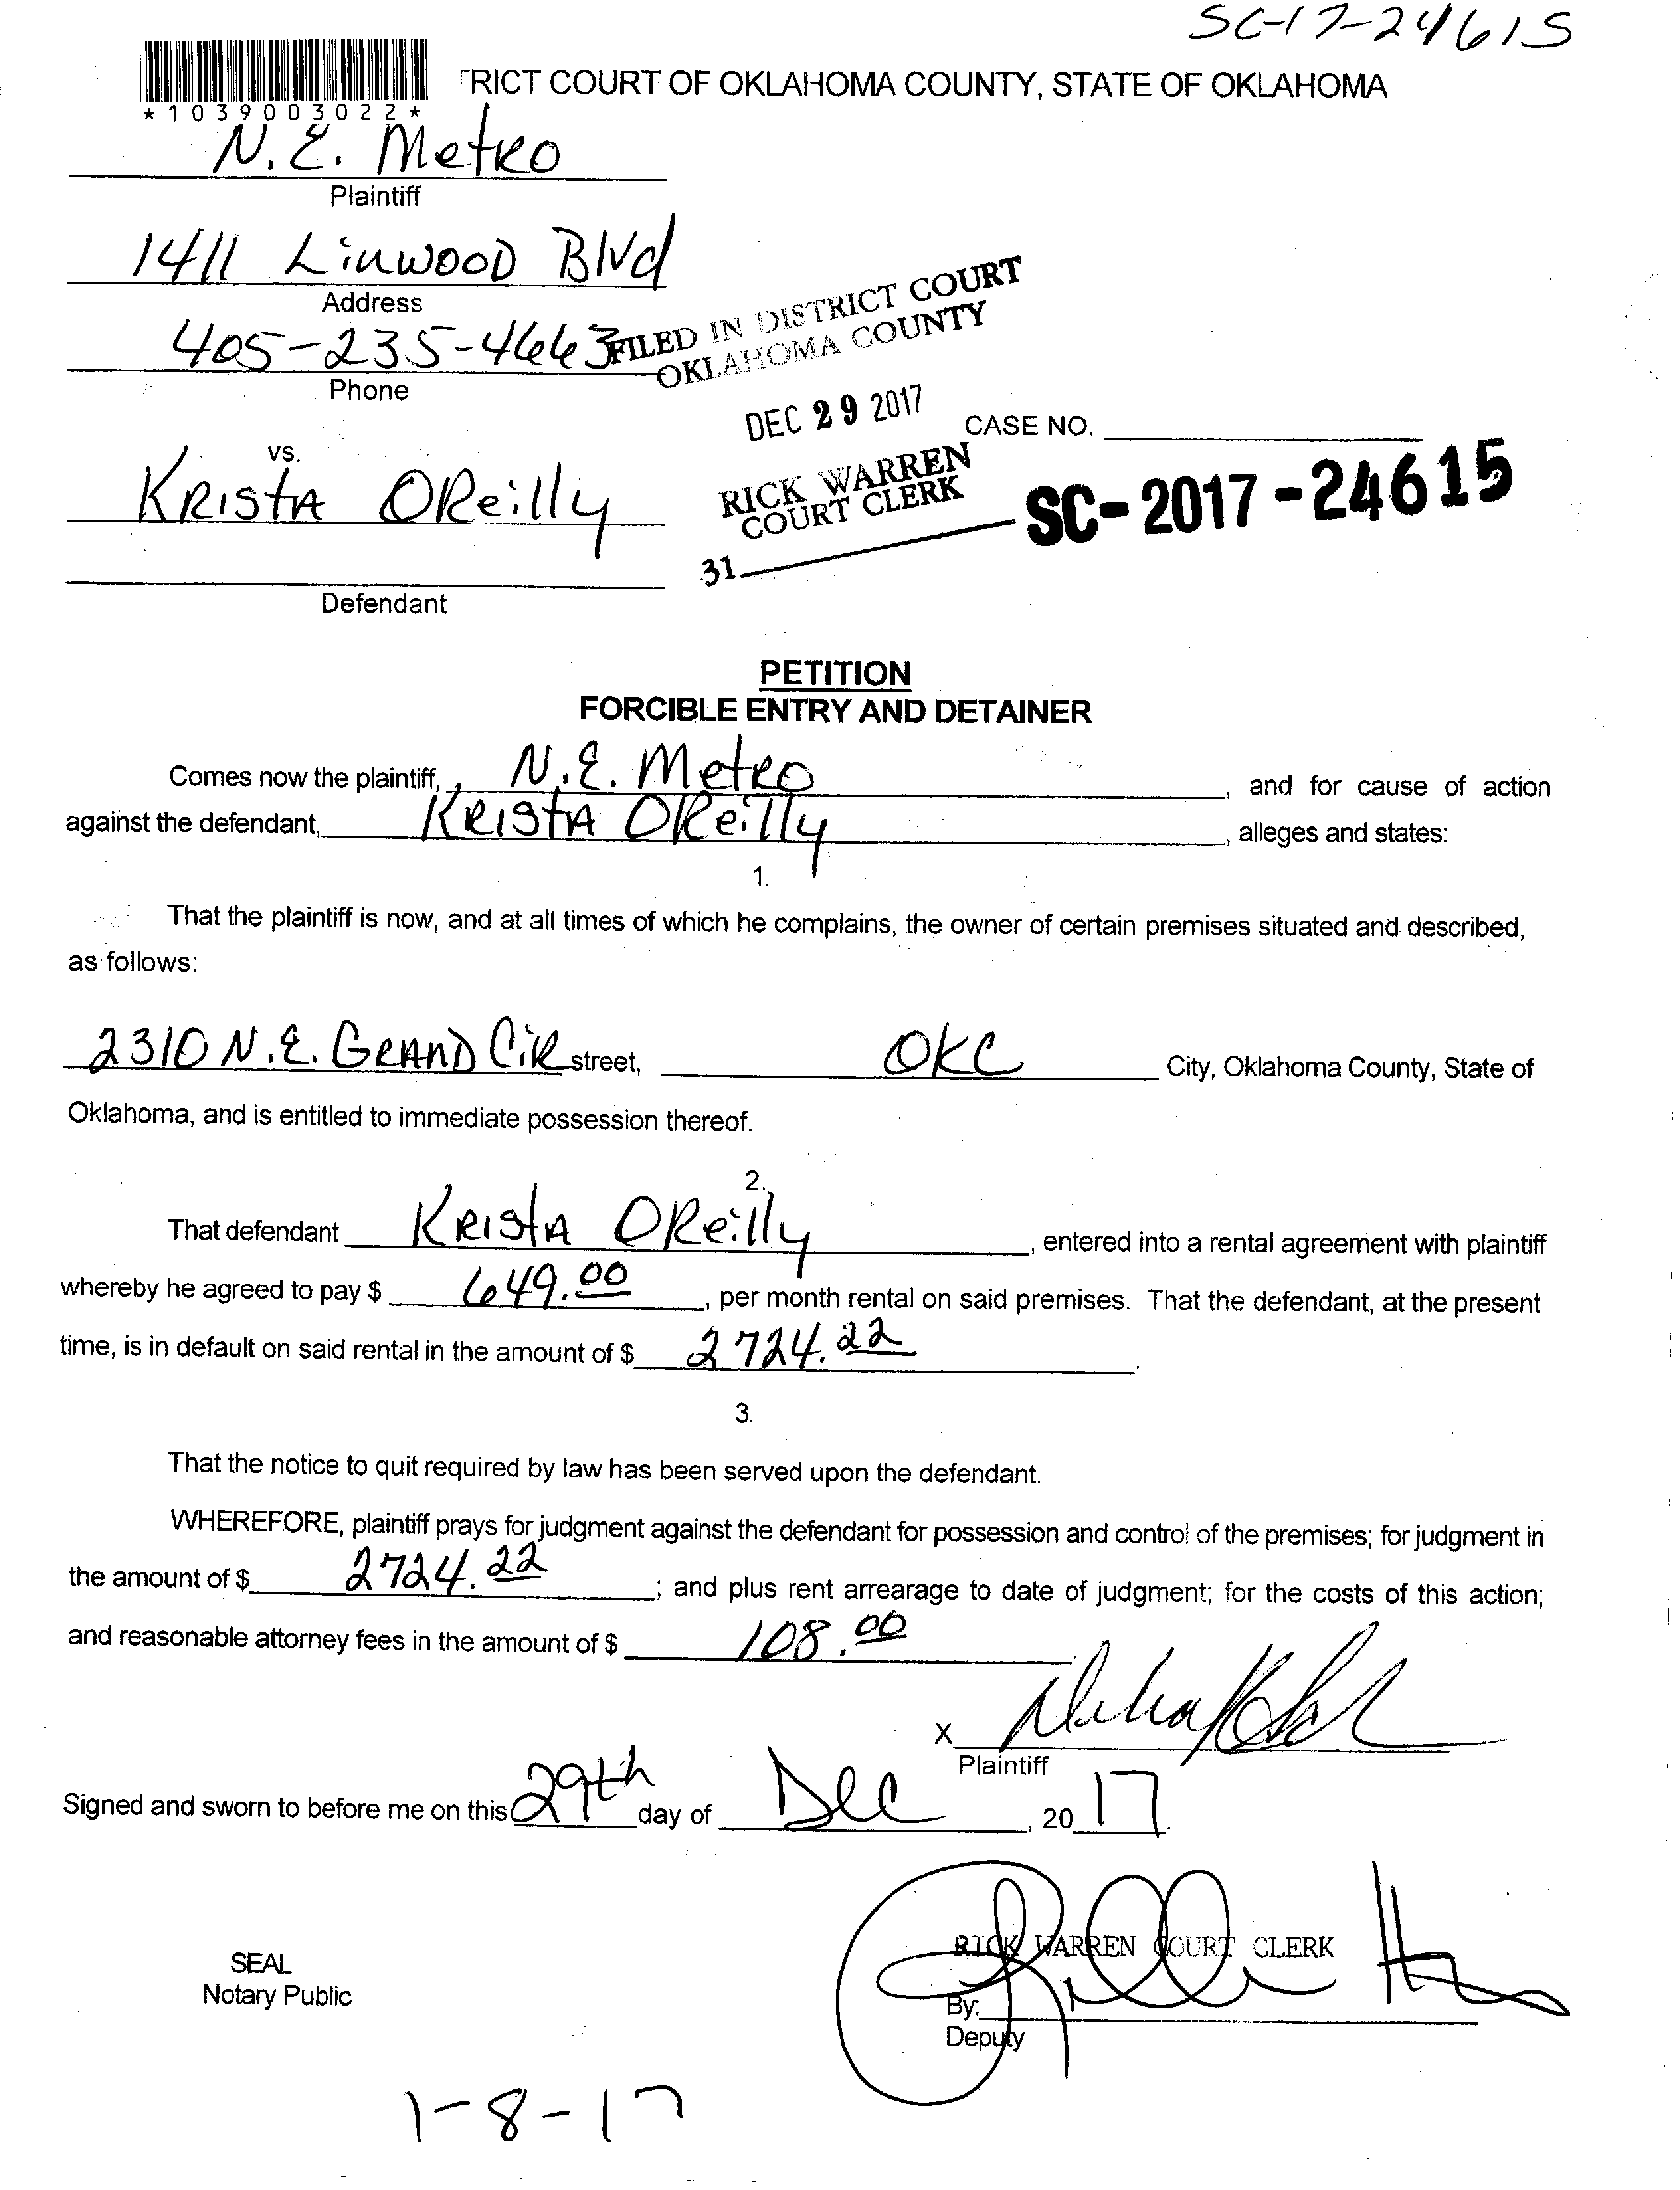 SC-17-24615
TRICT COURT OF OKLAHOMA COUNTY, STATE OF OKLAHOMA
*1039003022*
N.E. Metro
Plaintiff
1411 Linwood Blvd
Address
405-235-4663
Phone
FILED IN DISTRICT COURT
OKLAHOMA COUNTY
DEC 29 2017
RICK WARREN
COURT CLERK
31
CASE NO.
SC-2017-24615
vs.
Krista OReilly
Defendant
PETITION
FORCIBLE ENTRY AND DETAINER
Comes now the plaintiff, N.E. Metro, and for cause of action
against the defendant, Krista OReilly, alleges and states:
1.
That the plaintiff is now, and at all times of which he complains, the owner of certain premises situated and described,
as follows:
2310 N.E. Grand Cir street, OKC City, Oklahoma County, State of
Oklahoma, and is entitled to immediate possession thereof.
2.
That defendant Krista OReilly, entered into a rental agreement with plaintiff
whereby he agreed to pay $ 649.00, per month rental on said premises. That the defendant, at the present
time, is in default on said rental in the amount of $ 2724.22.
3.
That the notice to quit required by law has been served upon the defendant.
WHEREFORE, plaintiff prays for judgment against the defendant for possession and control of the premises; for judgment in
the amount of $ 2724.22; and plus rent arrearage to date of judgment; for the costs of this action;
and reasonable attorney fees in the amount of $ 108.00
X
Plaintiff
Signed and sworn to before me on this 29th day of Dec, 20 17.
RICK WARREN COURT CLERK
SEAL
Notary Public
By:
Deputy
1-8-17